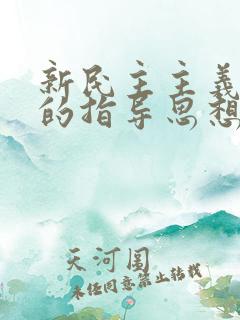 新民主主义
的指导思想
天河阁
未经同意禁止转载